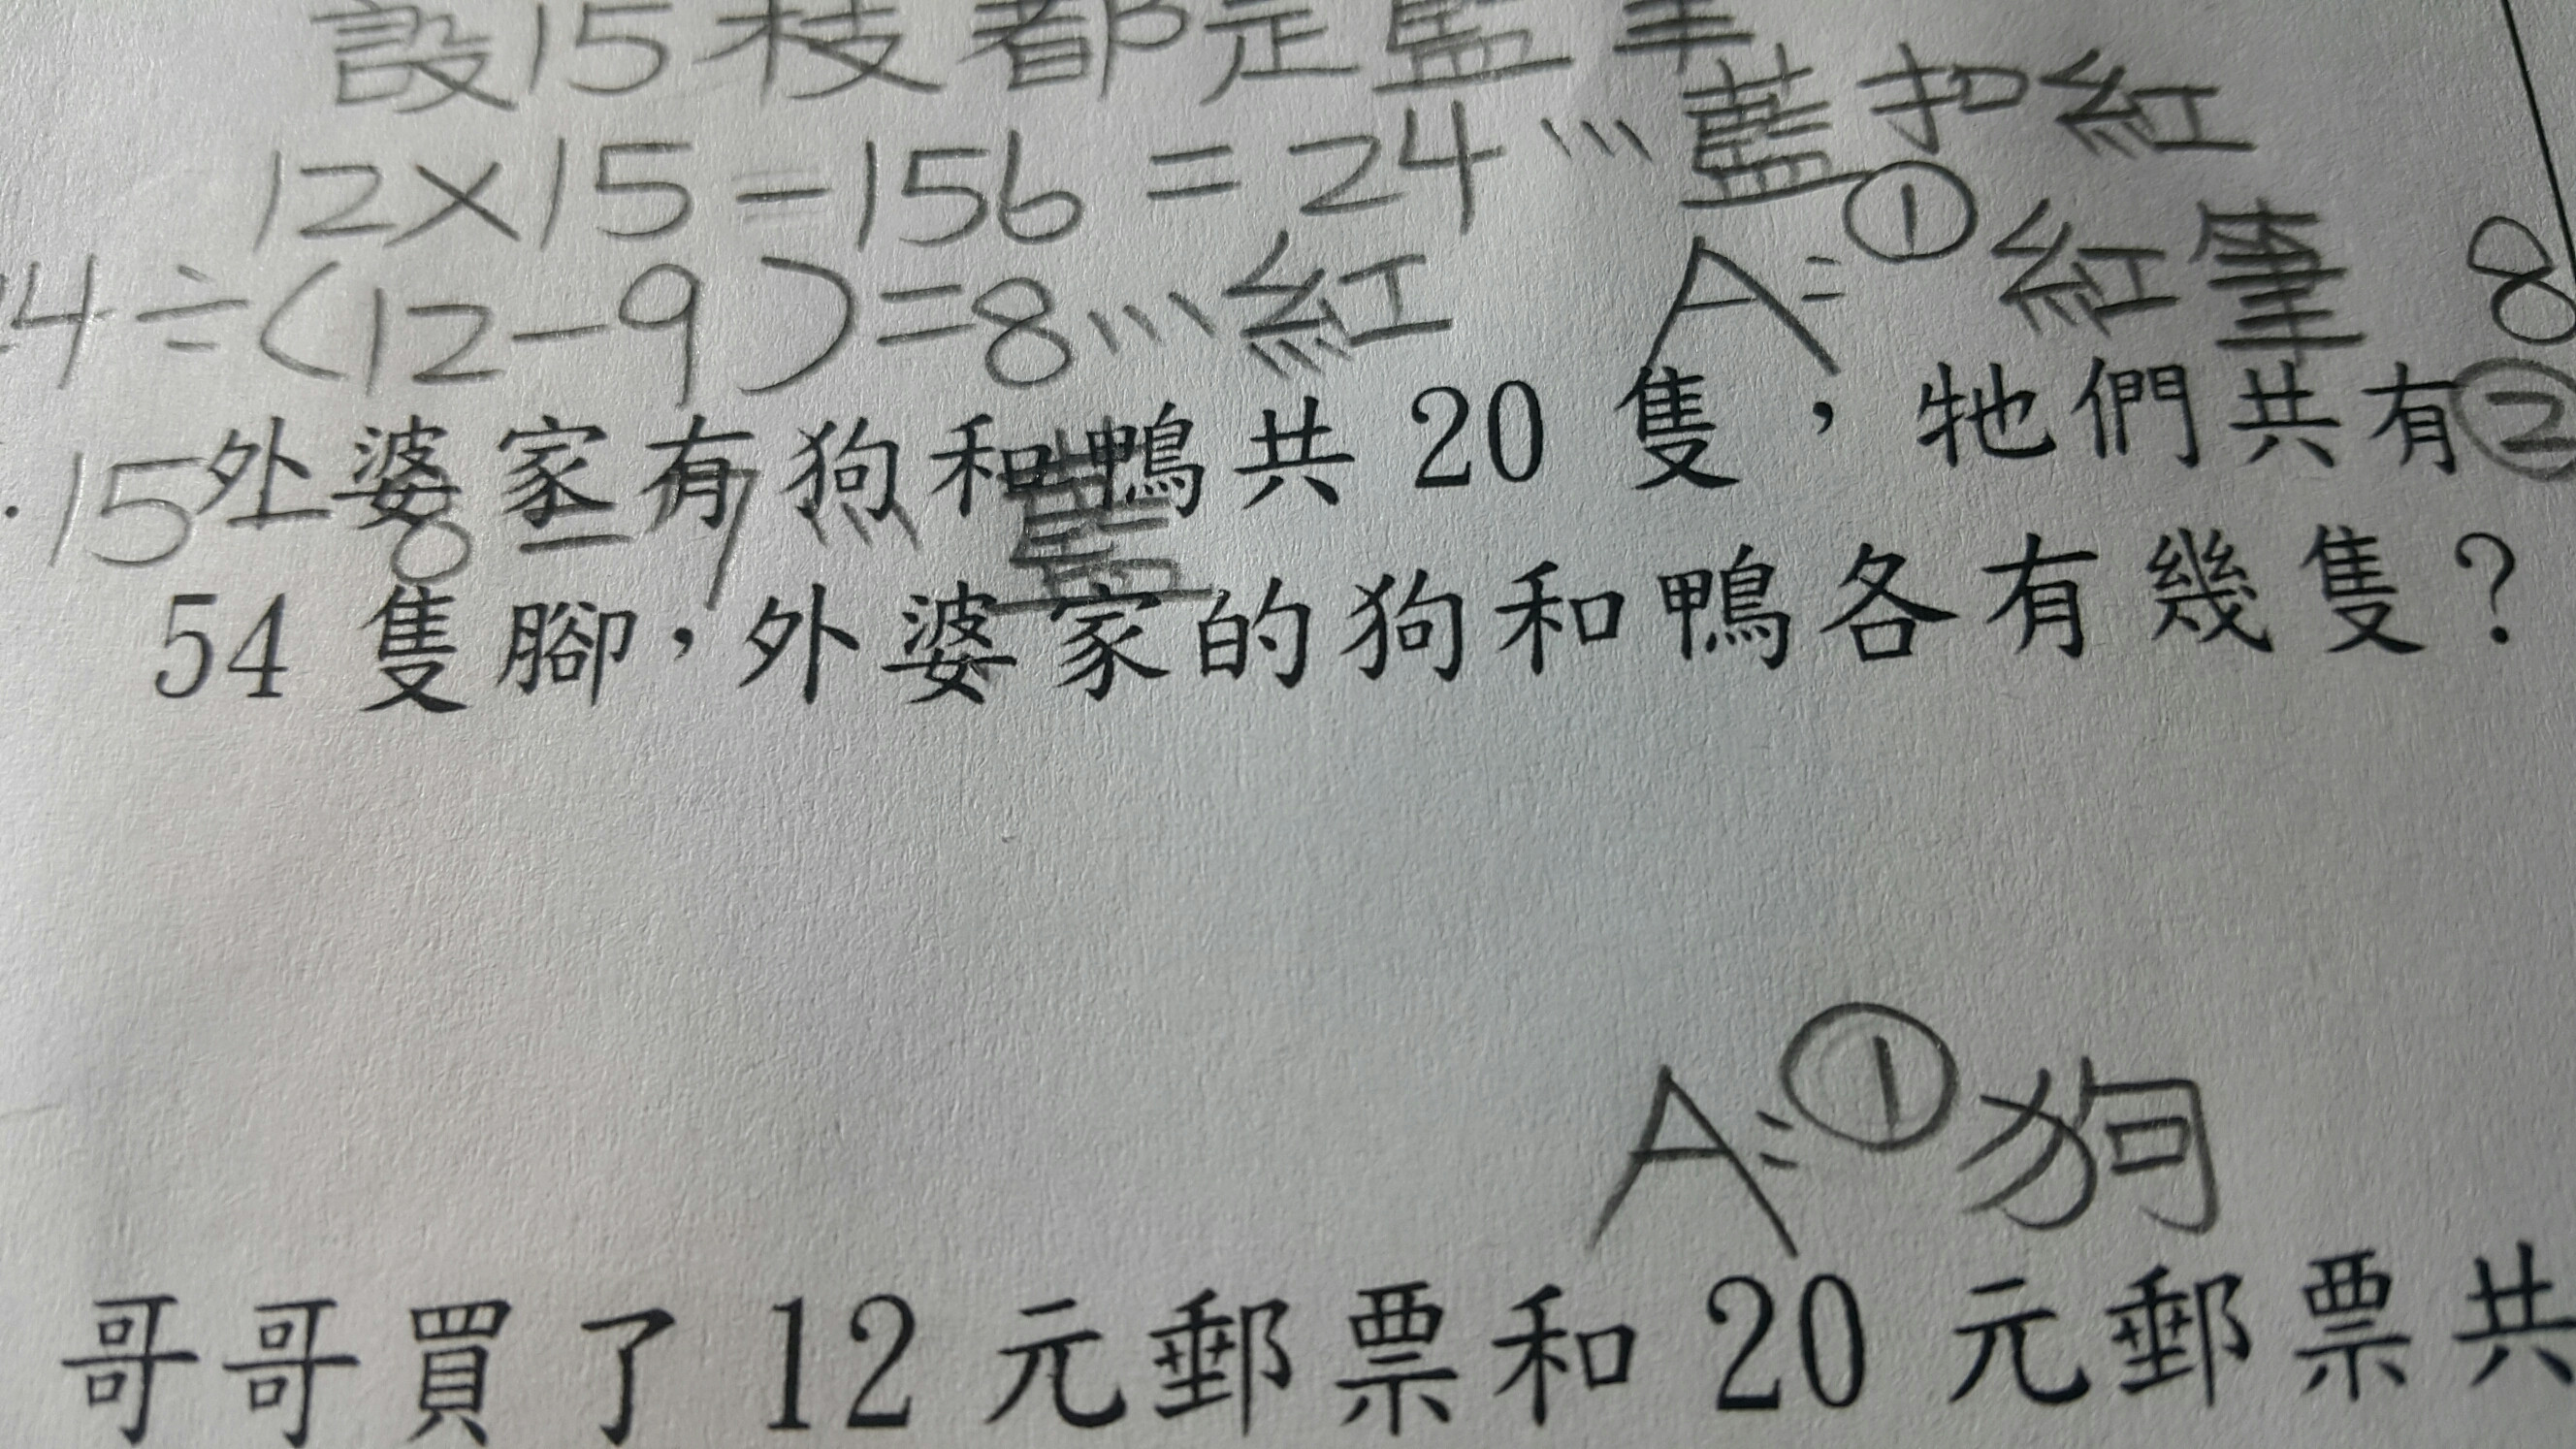 設15枝都是藍筆
12×15-156=24…藍和紅
4÷(12-9)=8…紅 A:①紅筆8
外婆家有狗和鴨共20隻，牠們共有②
15 8=7…藍
54隻腳，外婆家的狗和鴨各有幾隻？
A:①狗
哥哥買了12元郵票和20元郵票共